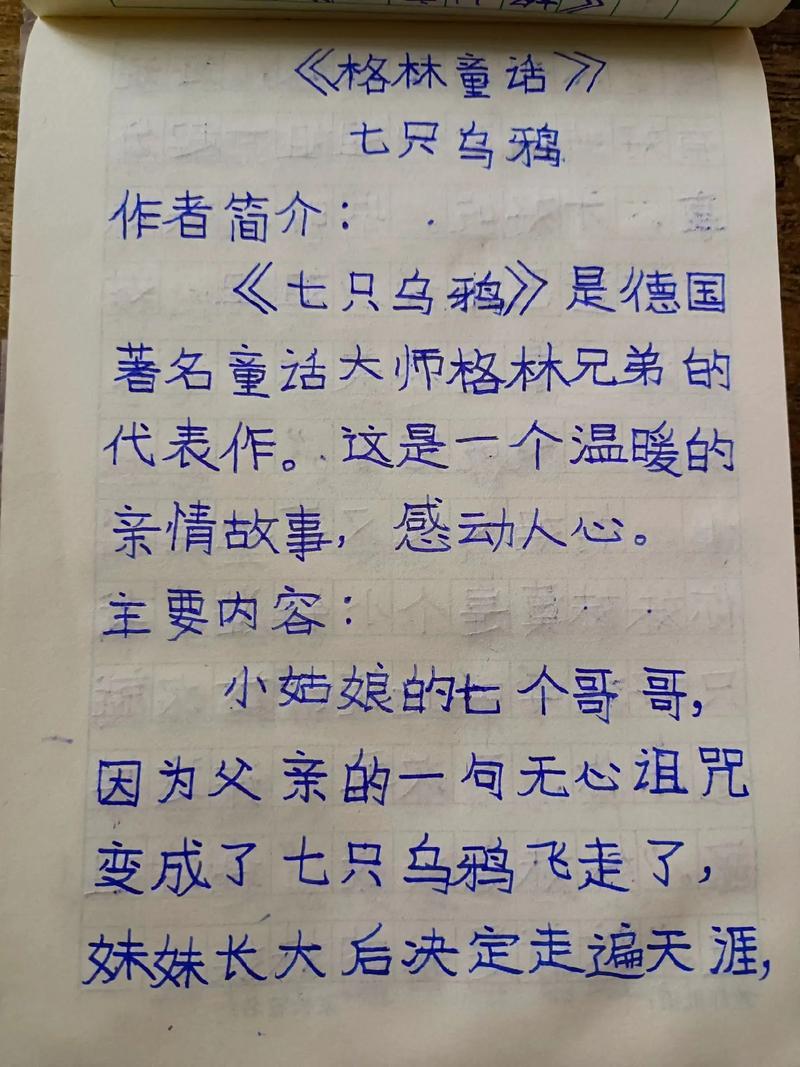 《格林童话》
七只乌鸦
作者简介：
《七只乌鸦》是德国
著名童话大师格林兄弟的
代表作。这是一个温暖的
亲情故事，感动人心。
主要内容：
小姑娘的七个哥哥，
因为父亲的一句无心诅咒
变成了七只乌鸦飞走了，
妹妹长大后决定走遍天涯，